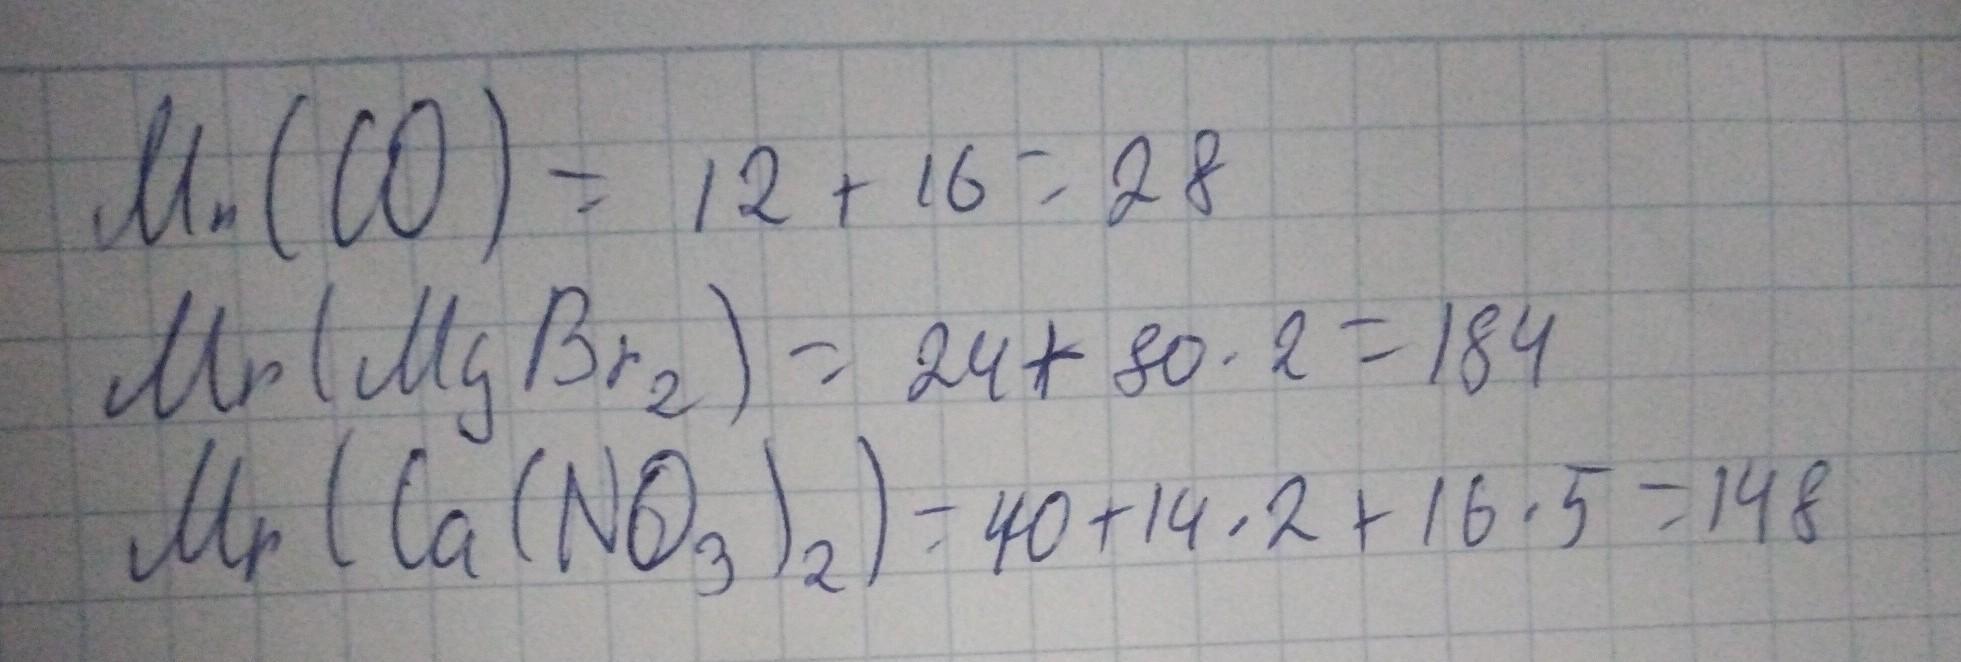 Mr(CO) = 12 + 16 = 28
Mr(MgBr₂) = 24 + 80 · 2 = 184
Mr(Ca(NO₃)₂) = 40 + 14 · 2 + 16 · 5 = 148